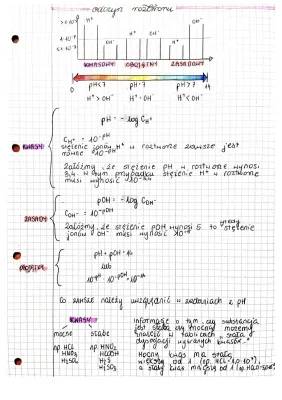 odczyn roztworu
H⁺ OH⁻
OH⁻ H⁺ OH⁻ H⁺
KWASOWY OBOJĘTNY ZASADOWY
0 pH<7 pH=7 pH>7 14
H⁺>OH⁻ H⁺=OH⁻ H⁺<OH⁻
pH = -log C_H⁺
KWASY
C_H⁺ = 10^-pH
stężenie jonów H⁺ w roztworze zawsze jest
równe 10^-pH
Załóżmy, że stężenie pH w roztworze wynosi
3,4. W tym przypadku stężenie H⁺ w roztworze
musi wynosić 10^-3,4
pOH = -log C_OH⁻
ZASADY
C_OH⁻ = 10^-pOH
Załóżmy, że stężenie pOH wynosi 5 to wtedy
stężenie jonów OH⁻ musi wynosić
pH + pOH = 14
lub
10^-pH · 10^-pOH = 10^-14
Co jeszcze należy uwzględnić w zadaniach z pH
KWASY
mocne słabe
np. HCl np. HNO₂
HNO₃ HCOOH
H₂SO₄ H₂S
H₂SO₃
Informacje o tym, czy substancja
jest słaba czy mocna możemy
znaleźć w tablicach stałą
dysocjacji wybranych kwasów.
Mocny kwas ma stałą
większą od 1
a słaby kwas mniejszą od 1